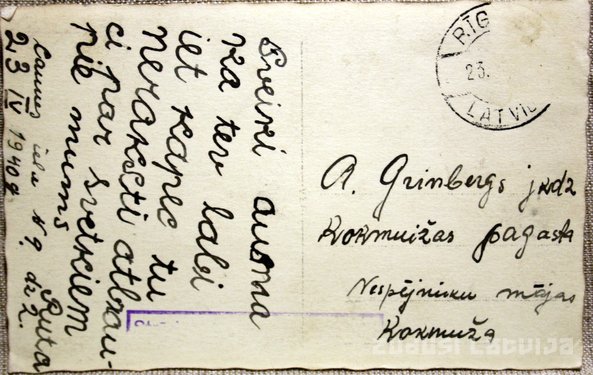 Sveiki ausma
ka tev labi
iet kapec tu
neraksti atbrau-
ci par svetkiem
pie mums
Ruta
iela N 9. dz 2.
23 IV 1940 g
RĪG
23.
LATVI
A. Grinbergs jkdz
Kokmuižas pagasta
Nespējnieku mājas
Kokmuža
ZUDUSI LATVIJA